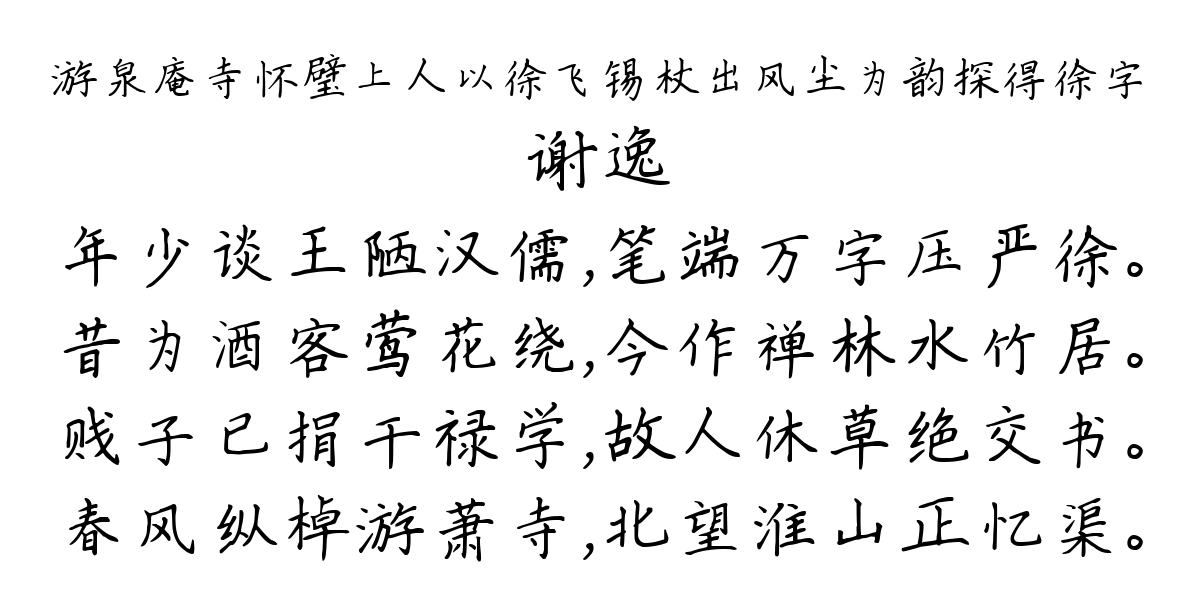 游泉庵寺怀璧上人以徐飞锡杖出风尘为韵探得徐字
谢逸
年少谈王陋汉儒,笔端万字压严徐。
昔为酒客莺花绕,今作禅林水竹居。
贱子已捐干禄学,故人休草绝交书。
春风纵棹游萧寺,北望淮山正忆渠。